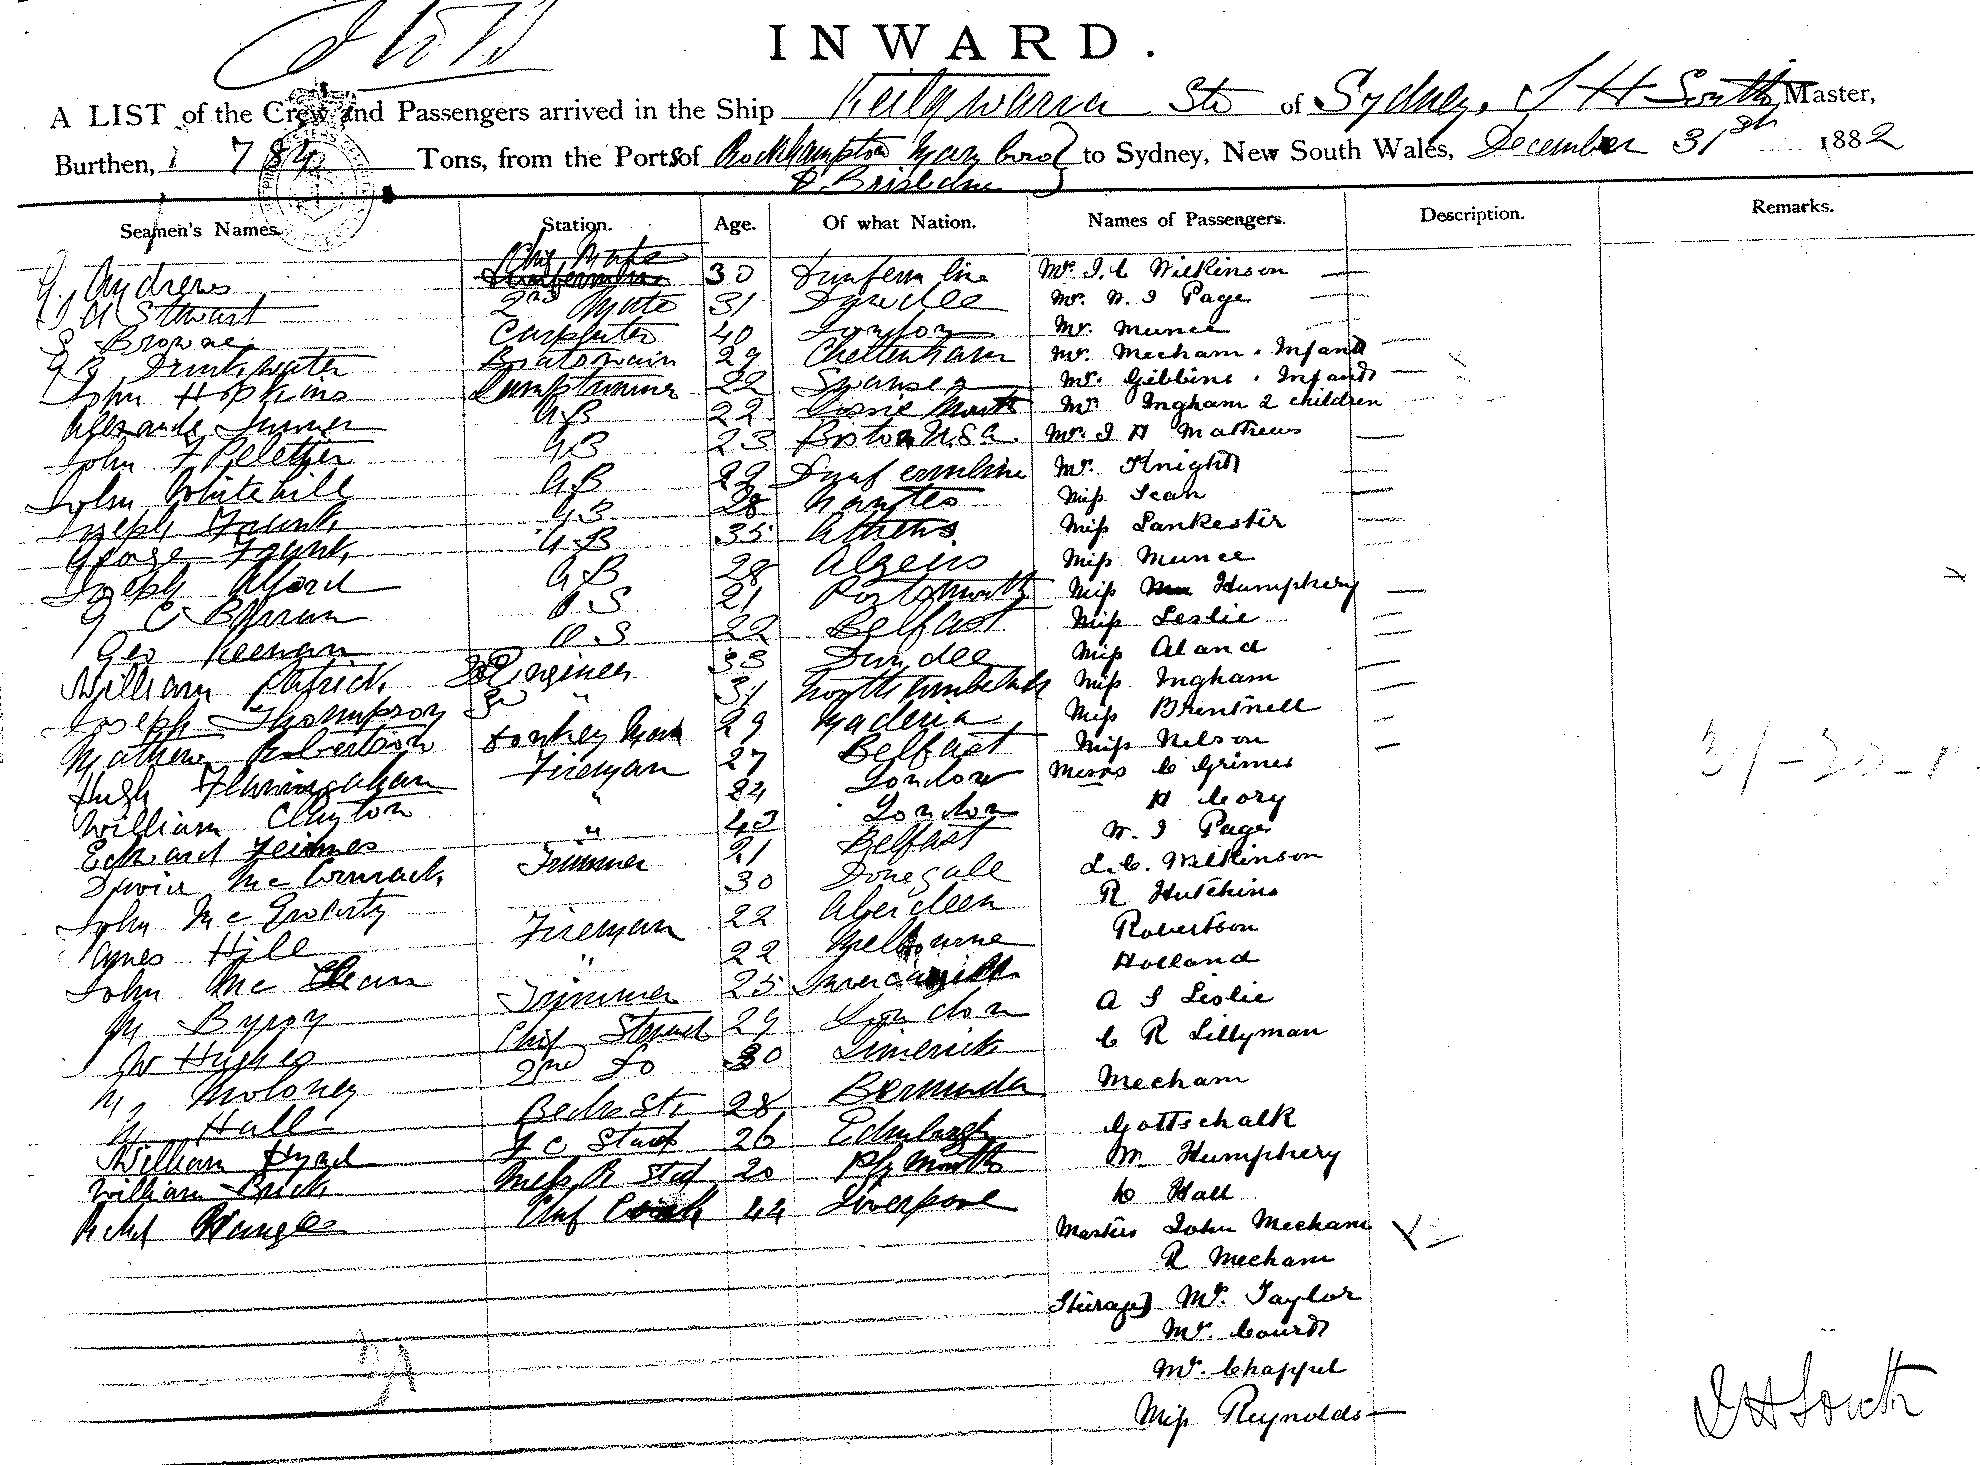 INWARD.
A LIST of the Crew and Passengers arrived in the Ship Keilawarra Str of Sydney, J H South Master,
Burthen, 784 Tons, from the Ports of Rockhampton Maryboro to Sydney, New South Wales, December 31st 1882
& Brisbane
Seamen's Names. Station. Age. Of what Nation. Names of Passengers. Description. Remarks.
Andrews Chief Mate 30 Dunfermline Mr. J. C Wilkinson
Stewart 2nd Mate 31 Dundee Mr. W. J Page
Browne Carpenter 40 London Mr. Munce
Drinkwater Boatswain 29 Cheltenham Mr. Mecham . Infant
John Hopkins Lamptrimmer 22 Swansea Mr. Gibbins . Infant
Alexander Turner AB 22 Mr. Ingham 2 children
John F Peletier AB 23 Boston U.S.a. Mr. J H Mathews
John Whitehill AB 22 Dunfermline Mr. Knight
Joseph Frank AB 28 Nantes Miss Jean
George Frank AB 35 Athens Miss Lankester
Joseph Alford AB 28 Algeirs Miss Munce
G C Byrran O.S 21 Portsmouth Miss Humphery
Geo Keenan O.S 22 Belfast Miss Leslie
William Patrick 2nd Engineer 33 Dundee Miss Aland
Joseph Thompson 3rd " 31 Northumberland Miss Ingham
Mathew Robertson Donkey Man 29 Maderia Miss Brentnell
Hugh Flannagahan Fireman 27 Belfast Miss Nelson
William Clayton " 24 London Messrs C Grimes
" 43 London H Cory
David McCormack Trimmer 21 Belfast W. J Page
John McGroarty 30 Donegale L. C. Wilkinson
James Hill Fireman 22 Aberdeen R Hutchins
John McClean " 22 Melbourne Robertson
M Byroy Trimmer 25 Invercargill Holland
W Hughes Chief Steward 29 London A S Leslie
M Moloney 2nd Do 30 Limerick C R Lillyman
H Hall 28 Bermuda Mecham
William Hynd F C Steward 26 Edinburgh Gottschalk
William Brick Mess R Std 20 Plymouth M Humphery
Chief Cook 44 Liverpool C Hall
Masters John Mecham
R Mecham
Steerage Mr. Taylor
Mr. Courd
Mr. Chappel
Miss Reynolds
J H South